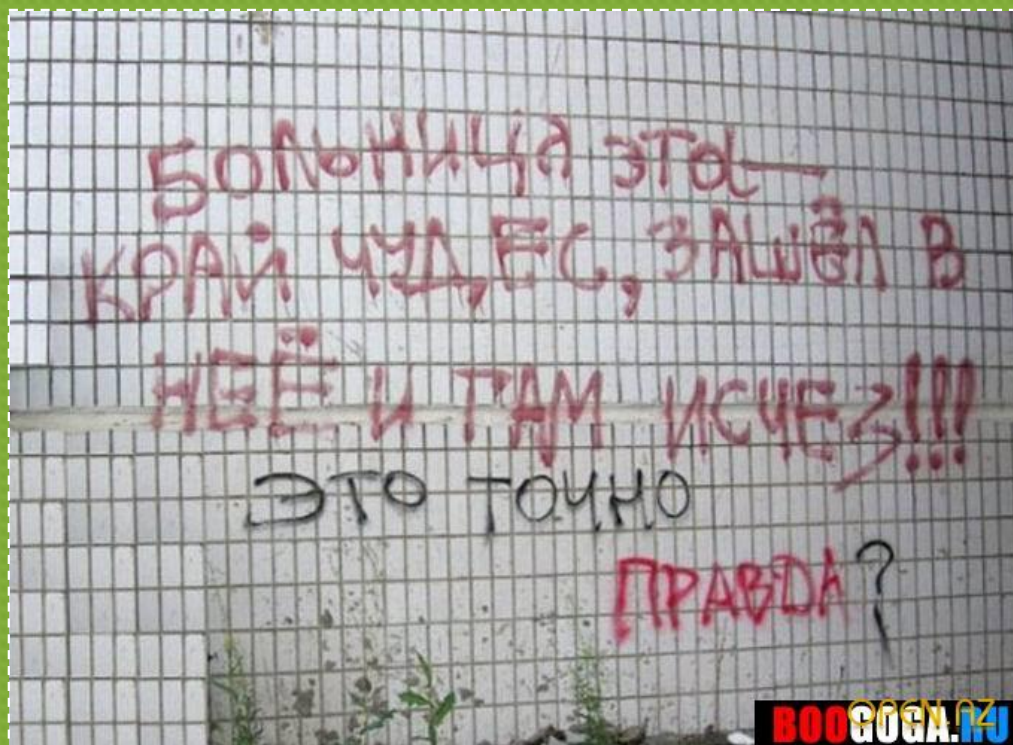 БОЛЬНИЦА ЭТО—
КРАЙ ЧУДЕС, ЗАШЁЛ В
НЕЁ И ТАМ ИСЧЕЗ!!!
ЭТО ТОЧНО
ПРАВДА?
OPEN.AZ
BOOGOGA.RU